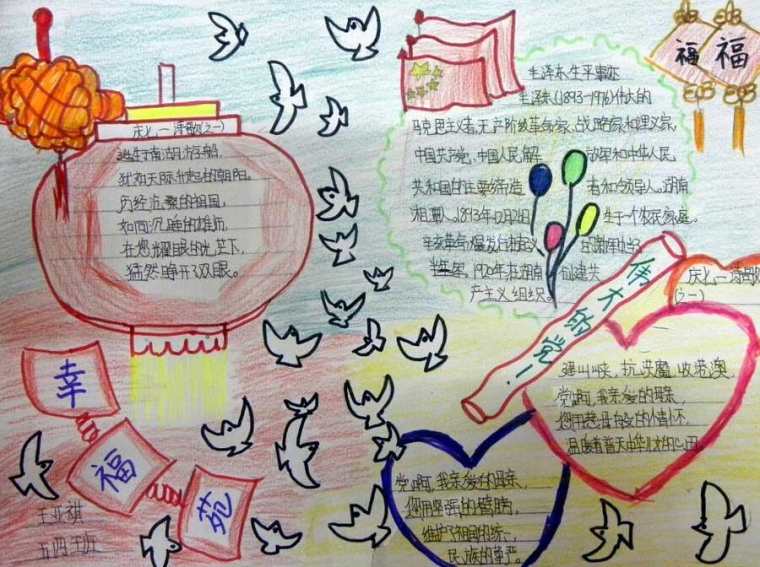 庆七一诗歌(之一)
诞生于南湖的航船,
犹如天际升起的朝阳。
历经沧桑的祖国,
如同沉睡的雄狮,
在您耀眼的光芒下,
猛然睁开了双眼。
幸
福
苑
五四班
毛泽东生平事迹
毛泽东(1893-1976)伟大的
马克思主义者,无产阶级革命家、战略家和理论家,
中国共产党、中国人民解 放军和中华人民
共和国的主要缔造 者和领导人。湖南
湘潭人。1893年12月26日 生于一个农民家庭。
辛亥革命爆发后
半年军,1920年在湖南 创建共
产主义组织。
福
福
伟大的党!
庆七一诗歌
(之一)
抗洪魔,收港澳,
党啊,我亲爱的母亲,
您用慈母般的情怀,
温暖着普天中华儿女的心田。
党啊,我亲爱的母亲,
您用坚强的臂膀,
维护了祖国的统一,
民族的尊严。